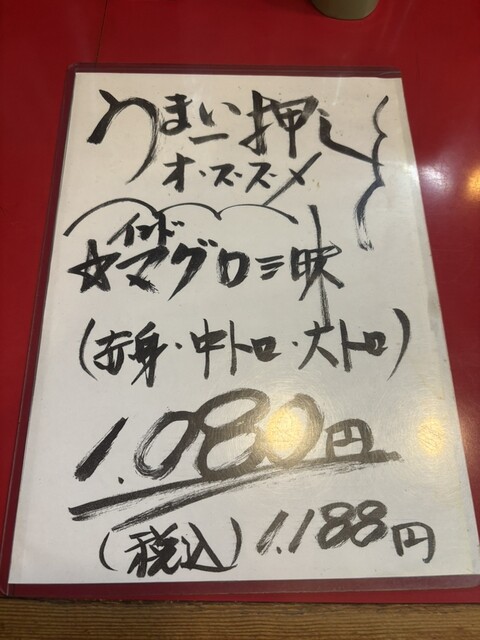 うまい一押し
オ・ス・ス・メ
☆インドマグロ三昧
(赤身・中トロ・大トロ)
1.080円
(税込) 1.188円